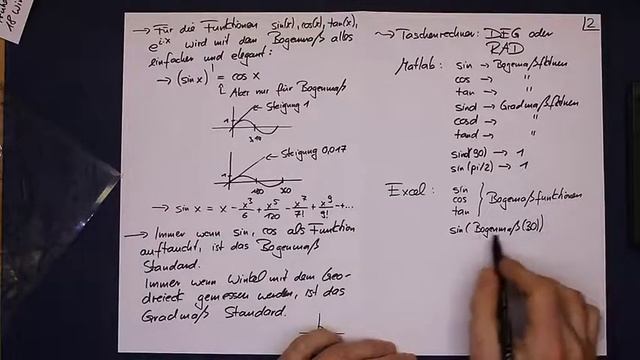 → Für die Funktionen sin(x), cos(x), tan(x),
e^{i·x} wird mit dem Bogenmaß alles
einfacher und elegant:
→ (sin x)' = cos x
Aber nur für Bogenmaß
Steigung 1
1
3,14
Steigung 0,017
1
180 360
→ sin x = x - x³/6 + x⁵/120 - x⁷/7! + x⁹/9! - + ...
→ Immer wenn sin, cos als Funktion
auftaucht, ist das Bogenmaß
Standard.
Immer wenn Winkel mit dem Geo-
dreieck gemessen werden, ist das
Gradmaß Standard.
2
→ Taschenrechner: DEG oder
RAD
Matlab: sin → Bogenmaßfktnen
cos → "
tan → "
sind → Gradmaßfktnen
cosd → "
tand → "
sind(90) → 1
sin(pi/2) → 1
Excel: sin
cos } Bogenmaßfunktionen
tan
sin(Bogenmaß(30))
18 Wi